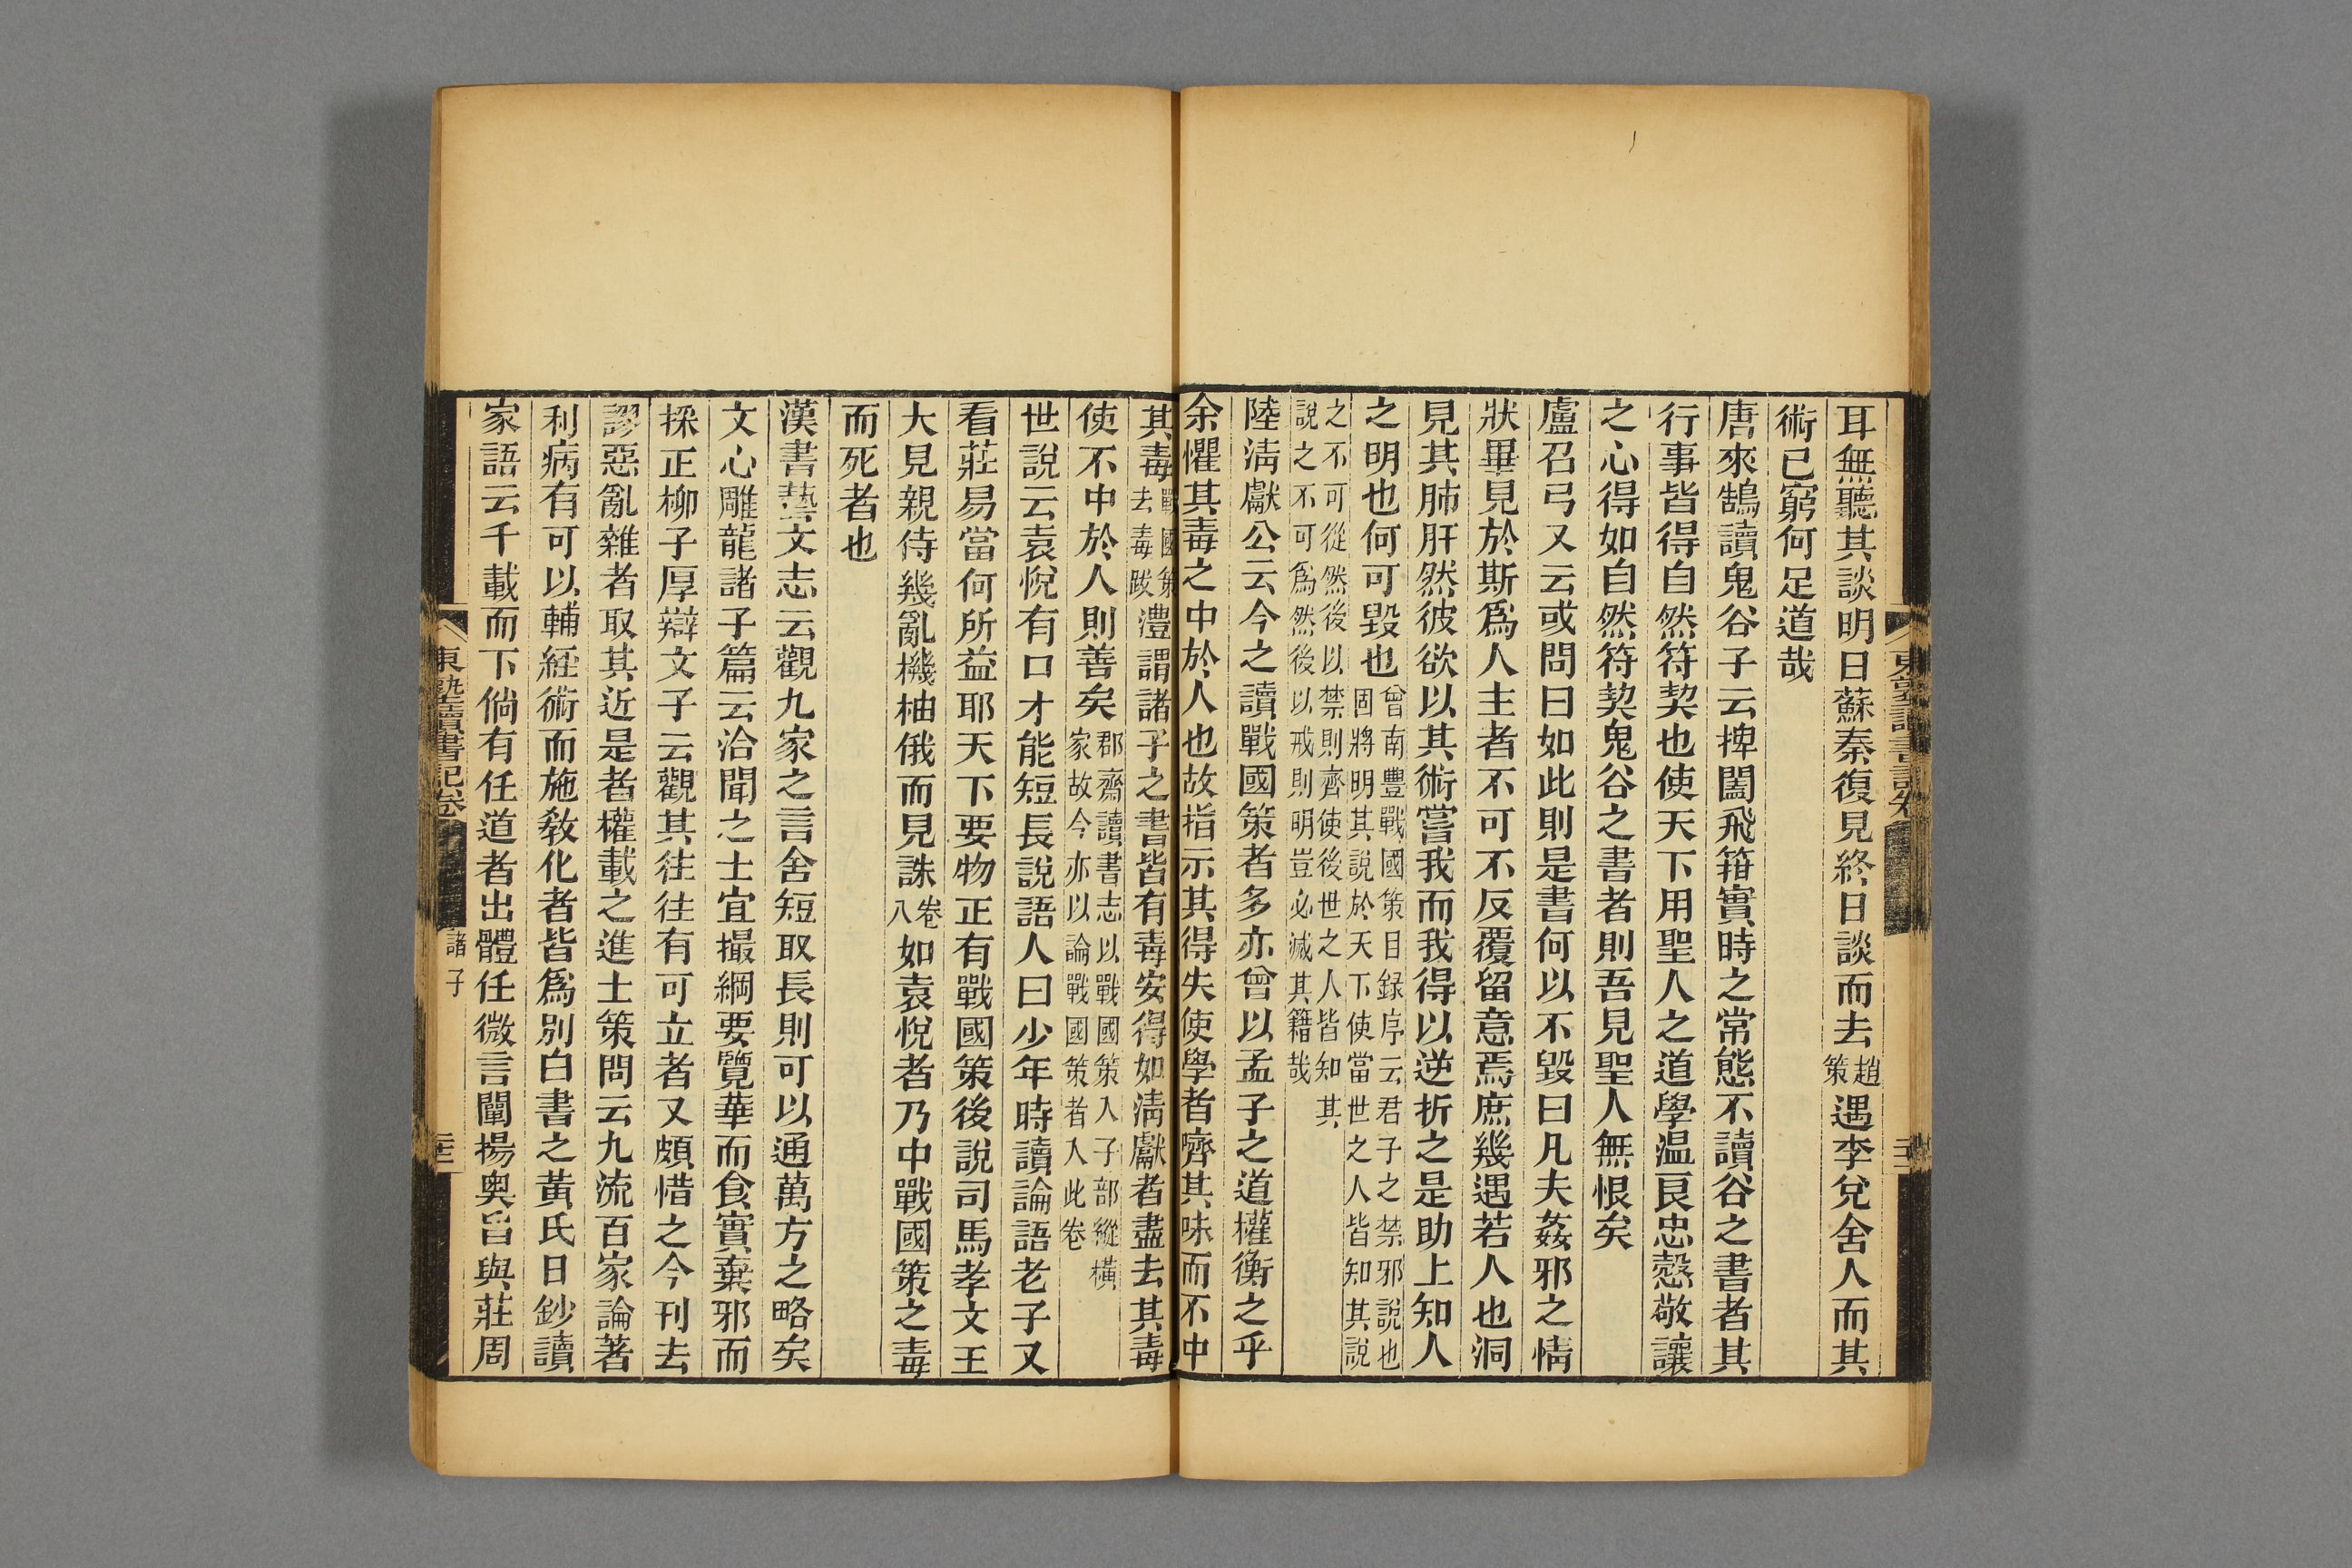 耳無聽其談明日蘇秦復見終日談而去趙策遇李兌舍人而其
術已窮何足道哉
唐來鵠讀鬼谷子云捭闔飛箝實時之常態不讀谷之書者其
行事皆得自然符契也使天下用聖人之道學温良忠慤敬讓
之心得如自然符契鬼谷之書者則吾見聖人無恨矣
盧召弓又云或問曰如此則是書何以不毀曰凡夫姦邪之情
狀畢見於斯爲人主者不可不反覆留意焉庶幾遇若人也洞
見其肺肝然彼欲以其術嘗我而我得以逆折之是助上知人
之明也何可毀也曾南豐戰國策目録序云君子之禁邪說也
固將明其說於天下使當世之人皆知其說
之不可從然後以禁則齊使後世之人皆知其
說之不可爲然後以戒則明豈必滅其籍哉
陸清獻公云今之讀戰國策者多亦曾以孟子之道權衡之乎
余懼其毒之中於人也故指示其得失使學者嚌其味而不中
其毒戰國策去毒跋澧謂諸子之書皆有毒安得如清獻者盡去其毒
使不中於人則善矣郡齋讀書志以戰國策入子部縱橫
家故今亦以論戰國策者入此卷
世說云袁悅有口才能短長說語人曰少年時讀論語老子又
看莊易當何所益耶天下要物正有戰國策後說司馬孝文王
大見親待幾亂機柚俄而見誅卷八如袁悅者乃中戰國策之毒
而死者也
漢書藝文志云觀九家之言舍短取長則可以通萬方之略矣
文心雕龍諸子篇云洽聞之士宜撮綱要覽華而食實棄邪而
採正柳子厚辯文子云觀其往往有可立者又頗惜之今刊去
謬惡亂雜者取其近是者權載之進士策問云九流百家論著
利病有可以輔經術而施敎化者皆爲別白書之黃氏日鈔讀
家語云千載而下倘有任道者出體任微言闡揚奧旨與莊周
東塾讀書記卷
諸子